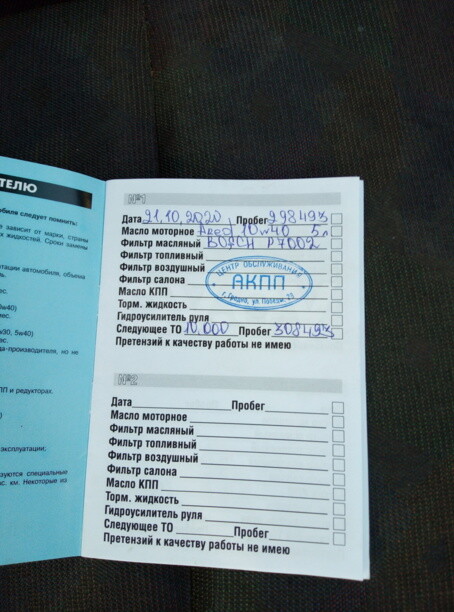 ТЕЛЮ
обиля следует помнить:
е зависит от марки, страны
х жидкостей. Сроки замены
тации автомобиля, объема
ес.
w40)
ес.
w30, 5w40)
ес.
да-производителя, но не
ПП и редукторах.
эксплуатации;
зуются специальные
с. км. Некоторые из
№1
Дата 21.10.2020 Пробег 298493
Масло моторное 10w40 5л
Фильтр масляный BOSCH P7002
Фильтр топливный
Фильтр воздушный
Фильтр салона
Масло КПП
Торм. жидкость
Гидроусилитель руля
Следующее ТО 10.000 Пробег 308493
Претензий к качеству работы не имею
ЦЕНТР ОБСЛУЖИВАНИЯ
АКПП
г. Гродно, ул.
№2
Дата Пробег
Масло моторное
Фильтр масляный
Фильтр топливный
Фильтр воздушный
Фильтр салона
Масло КПП
Торм. жидкость
Гидроусилитель руля
Следующее ТО Пробег
Претензий к качеству работы не имею